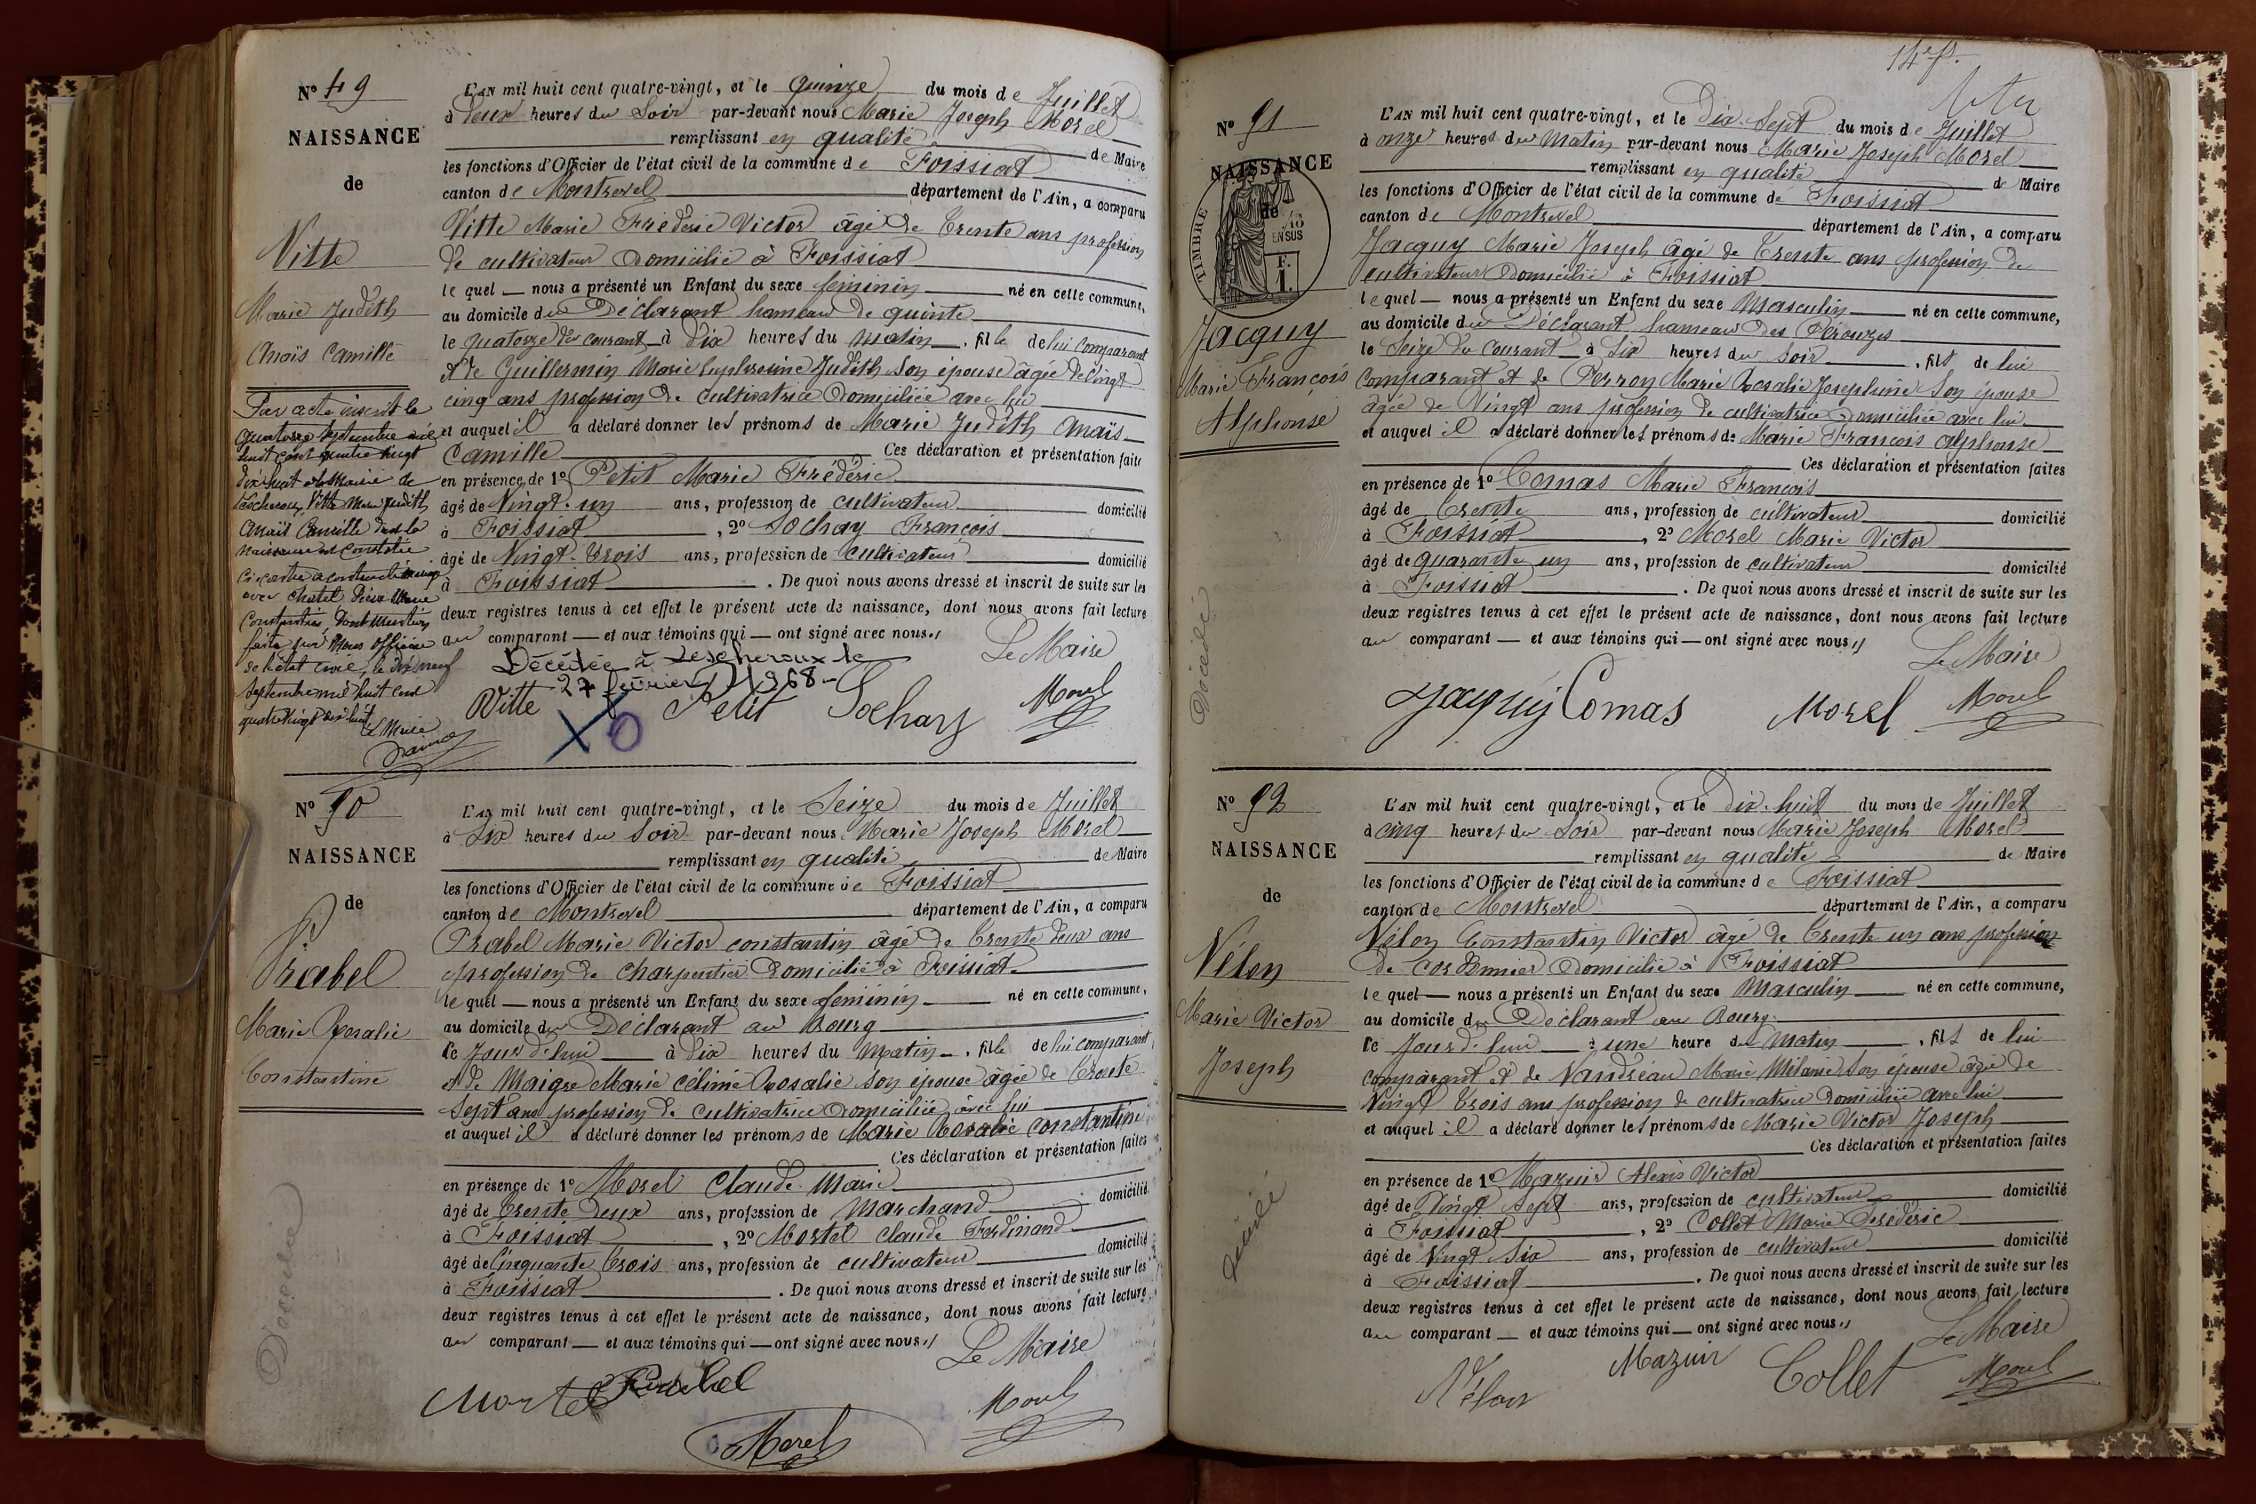 N° 49
NAISSANCE
de
Vitte
Marie Judith
Anaïs Camille
Par acte inscrit le
quatorze septembre mil
huit cent quatre vingt
dix huit à la Mairie de
Lescheroux, Vitte Marie Judith
Anaïs Camille dont la
naissance est constatée
ci-contre a contracté mariage
avec Chatel
Constantin, dont mention
faite par Nous officier
de l'état civil, le dix neuf
septembre mil huit cent
quatre vingt dix huit
Le Maire
L'AN mil huit cent quatre-vingt, et le quinze du mois de Juillet
à Deux heures du Soir par-devant nous Marie Joseph Morel
remplissant en qualité de Maire
les fonctions d'Officier de l'état civil de la commune de Foissiat
canton de Montrevel département de l'Ain, a comparu
Vitte Marie Fréderic Victor âgé de Trente ans profession
de cultivateur domicilié à Foissiat
le quel — nous a présenté un Enfant du sexe feminin né en cette commune,
au domicile du Déclarant hameau de quinte
le quatorze du courant à Dix heures du matin, fille de lui comparant
et de Guillermin Marie Euphrosine Judith Son épouse âgée de Vingt
cinq ans profession de cultivatrice domiciliée avec lui
et auquel il a déclaré donner les prénoms de Marie Judith Anaïs
Camille Ces déclaration et présentation faites
en présence de 1° Petit Marie Frédéric
âgé de Vingt-un ans, profession de cultivateur domicilié
à Foissiat, 2° Sochay François
âgé de Vingt-trois ans, profession de cultivateur domicilié
à Foissiat. De quoi nous avons dressé et inscrit de suite sur les
deux registres tenus à cet effet le présent acte de naissance, dont nous avons fait lecture
au comparant — et aux témoins qui — ont signé avec nous.
Le Maire
Décédée à Lescheroux le
27 février 1968
Vitte Petit Sochay Morel
N° 90
NAISSANCE
de
Prabel
Marie Rosalie
Constantine
Décédée
L'AN mil huit cent quatre-vingt, et le Seize du mois de Juillet
à Six heures du Soir par-devant nous Marie Joseph Morel
remplissant en qualité de Maire
les fonctions d'Officier de l'état civil de la commune de Foissiat
canton de Montrevel département de l'Ain, a comparu
Prabel Marie Victor constantin âgé de Trente deux ans
profession de charpentier domicilié à Foissiat
le quel — nous a présenté un Enfant du sexe feminin né en cette commune,
au domicile du Déclarant au Bourg
le Jour d'hui à Dix heures du matin, fille de lui comparant
et de Maigre Marie célinie Rosalie son épouse âgée de Trente
Sept ans profession de cultivatrice domiciliée avec lui
et auquel il a déclaré donner les prénoms de Marie Rosalie Constantine
Ces déclaration et présentation faites
en présence de 1° Morel Claude-Marie
âgé de Trente Deux ans, profession de Marchand domicilié
à Foissiat, 2° Mortel claude Ferdinand
âgé de Cinquante Trois ans, profession de cultivateur domicilié
à Foissiat. De quoi nous avons dressé et inscrit de suite sur les
deux registres tenus à cet effet le présent acte de naissance, dont nous avons fait lecture
au comparant — et aux témoins qui — ont signé avec nous.
Le Maire
Mortel Prabel Morel
Morel
N° 91
NAISSANCE
de
TIMBRE
EN SUS
F.
1.
Jacquy
Marie François
Alphonse
Décédé
L'AN mil huit cent quatre-vingt, et le Dix-Sept du mois de Juillet
à onze heures du Matin par-devant nous Marie Joseph Morel
remplissant en qualité de Maire
les fonctions d'Officier de l'état civil de la commune de Foissiat
canton de Montrevel département de l'Ain, a comparu
Jacquy Marie Joseph âgé de Trente ans profession de
cultivateur domicilié à Foissiat
le quel — nous a présenté un Enfant du sexe Masculin né en cette commune,
au domicile du Déclarant hameau des Perouzes
le Seize du Courant à Six heures du Soir, fils de lui
comparant et de Perron Marie Rosalie Josephine Son épouse
âgée de Vingt ans profession de cultivatrice domiciliée avec lui
et auquel il a déclaré donner les prénoms de Marie François alphonse
Ces déclaration et présentation faites
en présence de 1° Comas Marie François
âgé de Trente ans, profession de cultivateur domicilié
à Foissiat, 2° Morel Marie Victor
âgé de quarante un ans, profession de cultivateur domicilié
à Foissiat. De quoi nous avons dressé et inscrit de suite sur les
deux registres tenus à cet effet le présent acte de naissance, dont nous avons fait lecture
au comparant — et aux témoins qui — ont signé avec nous.
Le Maire
Jacquy Comas Morel Morel
N° 92
NAISSANCE
de
Vélon
Marie Victor
Joseph
Décédé
L'AN mil huit cent quatre-vingt, et le Dix-huit du mois de Juillet
à cinq heures du Soir par-devant nous Marie Joseph Morel
remplissant en qualité de Maire
les fonctions d'Officier de l'état civil de la commune de Foissiat
canton de Montrevel département de l'Ain, a comparu
Vélon Constantin Victor âgé de Trente un ans profession
de Cordonnier domicilié à Foissiat
le quel — nous a présenté un Enfant du sexe Masculin né en cette commune,
au domicile du Déclarant au Bourg
le Jour d'hui à une heure du Matin, fils de lui
comparant et de Vandréau Marie Mélanie Son épouse âgée de
Vingt Trois ans profession de cultivatrice domiciliée avec lui
et auquel il a déclaré donner les prénoms de Marie Victor Joseph
Ces déclaration et présentation faites
en présence de 1° Mazuir Alexis Victor
âgé de Vingt Sept ans, profession de cultivateur domicilié
à Foissiat, 2° Collet Marie Fréderic
âgé de Vingt Six ans, profession de cultivateur domicilié
à Foissiat. De quoi nous avons dressé et inscrit de suite sur les
deux registres tenus à cet effet le présent acte de naissance, dont nous avons fait lecture
au comparant — et aux témoins qui — ont signé avec nous.
Le Maire
Vélon Mazuir Collet Morel